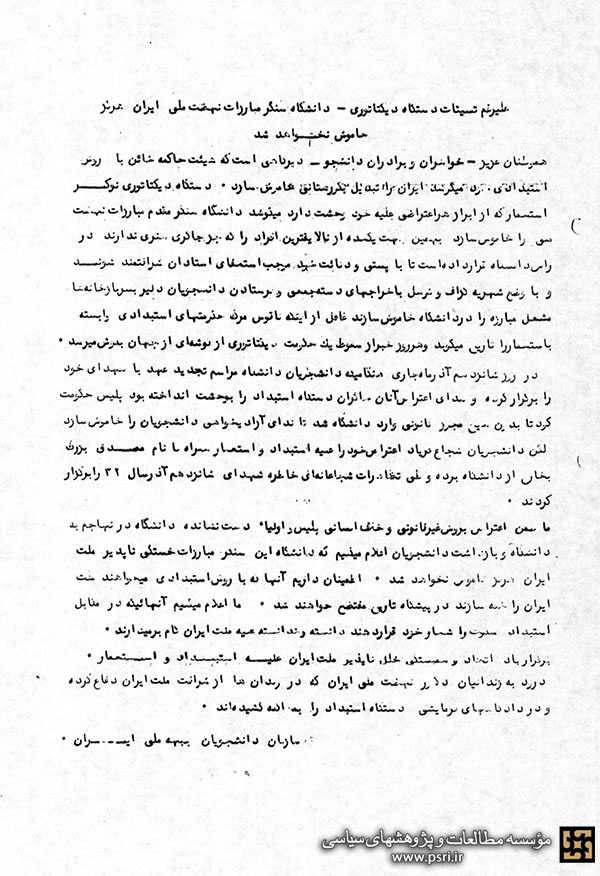 علیرغم تسبثات دستگاه دیکتاتوری - دانشگاه سنگر مبارزات نهضت ملی ایران هرگز
خاموش نخواهد شد
هموطنان عزیز - خواهران و برادران دانشجو - دیرزمانی است که هیئت حاکمه خائن با روش
استبدادی ایران را تبدیل بگورستانی خاموش سازد ٠ دستگاه دیکتاتوری نوکر
استعمار که از ابراز هر اعتراضی علیه خود وحشت دارد میکوشد دانشگاه سنگر مقدم مبارزات نهضت
را خاموش سازد بهمین جهت یکعده از نالایقترین افراد را که جز چاکری هنری ندارند در
قرار داده است تا با پستی و دنائت موجب استعفای استادان شرافتمند شوند
و با وضع شهریه گزاف و توسل باخراجهای دسته جمعی و فرستادن دانشجویان دلیر بسربازخانه ها
مشعل مبارزه را در دانشگاه خاموش سازند غافل از اینکه ناقوس مرگ حکومتهای استبدادی وابسته
باستعمار را تاریخ میکوبد و هر روز خبر از سقوط یک حکومت دیکتاتوری از گوشه ای از جهان بگوش میرسد ٠
در روز شانزدهم آذر ماه جاری هنگامیکه دانشجویان دانشگاه مراسم تجدید عهد با شهدای خود
را برگزار کرده و صدای اعتراض آنان دستگاه استبداد را بوحشت انداخته بود پلیس حکومت
کودتا بدون مجوز قانونی وارد دانشگاه شد تا ندای آزادیخواهی دانشجویان را خاموش سازد
لکن دانشجویان شجاع فریاد اعتراض خود را علیه استبداد و استعمار همراه با نام مصدق بزرگ
بخارج از دانشگاه برده و طی تظاهرات شجاعانه ای خاطره شهدای شانزدهم آذر سال ٣٢ را برگزار
کردند ٠
ما ضمن اعتراض بروش غیرقانونی و پلیس و اولیاء دست نشانده دانشگاه در تهاجم به
دانشگاه و بازداشت دانشجویان اعلام میکنیم که دانشگاه این سنگر مبارزات خستگی ناپذیر ملت
ایران هرگز خاموش نخواهد شد ٠ اطمینان داریم آنها که با روش استبدادی میخواهند ملت
ایران را خفه سازند در پیشگاه تاریخ مفتضح خواهند شد ٠ ما اعلام میکنیم آنهائیکه در مقابل
استبداد سکوت را شعار خود قرار دهند دانسته و ندانسته علیه ملت ایران گام برمیدارند ٠
برقرار باد اتحاد و همبستگی خلل ناپذیر ملت ایران علیه استبداد و استعمار ٠
درود به زندانیان دلاور نهضت ملی ایران که در زندان ها از شرافت ملت ایران دفاع کرده
و در دادگاههای فرمایشی دستگاه استبداد را به کشیده اند ٠
سازمان دانشجویان جبهه ملی ایران ٠
مؤسسه مطالعات و پژوهشهای سیاسی
www.psri.ir